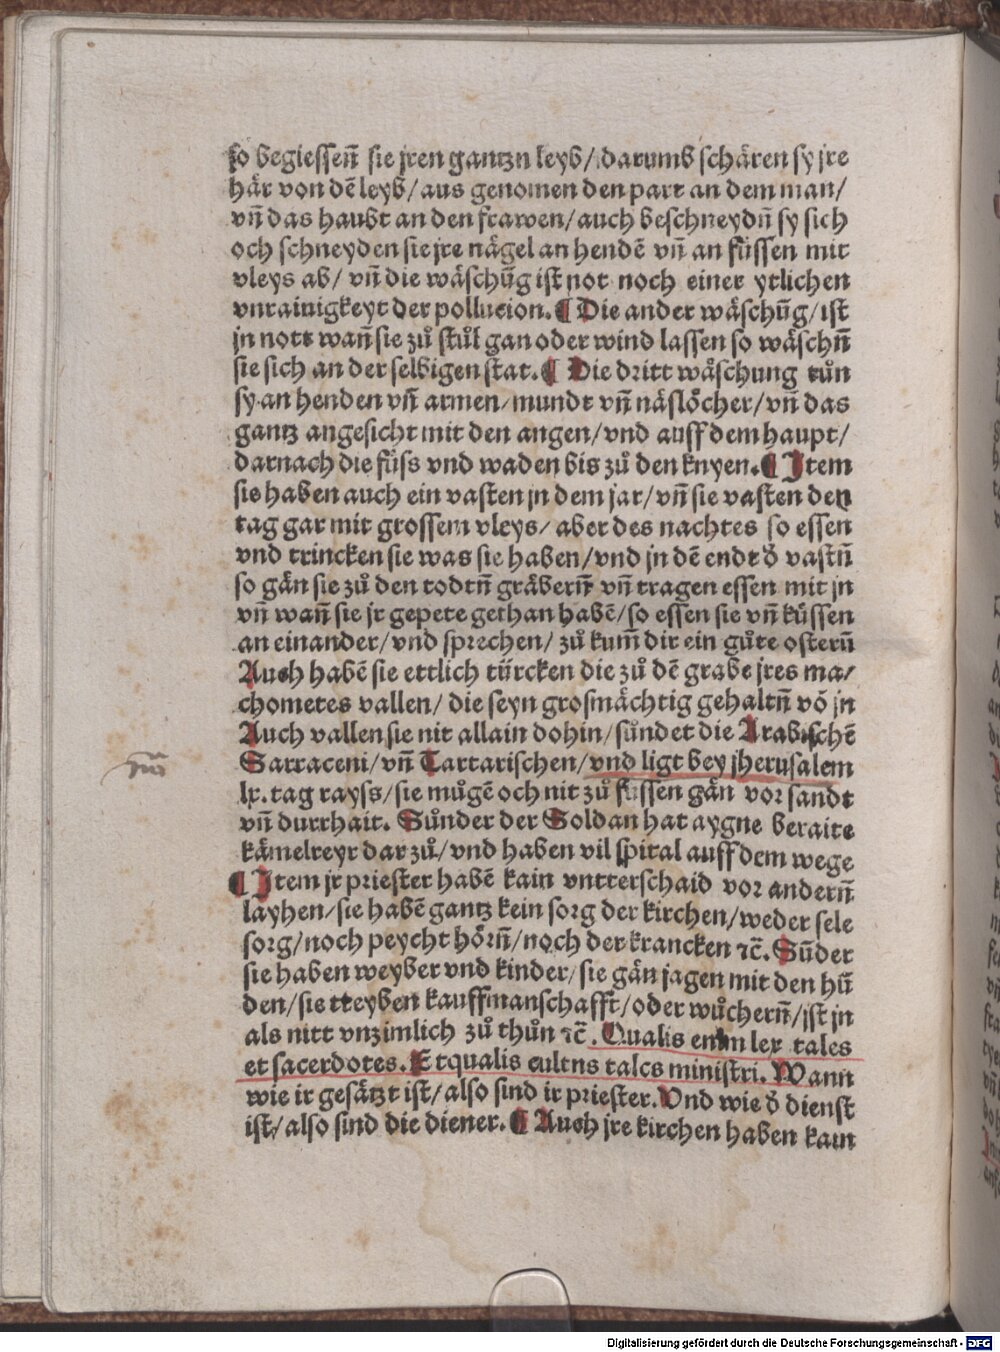 so begiessen̄ sie jren gantzn leyb/ darumb schären sy jre
här von dē leyb/ aus genomen den part an dem man/
vn̄ das haubt an den frawen/ auch beschneydn̄ sy sich
och schneyden sie jre nägel an hendē vn̄ an füssen mit
vleys ab/ vn̄ die wäschūg ist not noch einer ytlichen
vnrainigkeyt der pollucion. ¶ Die ander wäschūg/ ist
jn nott wan̄ sie zů stůl gan oder wind lassen so wäschn̄
sie sich an der selbigen stat. ¶ Die dritt wäschung tůn
sy an henden vn̄ armen/ mundt vn̄ näslöcher/ vn̄ das
gantz angesicht mit den angen/ vnd auff dem haupt/
darnach die füss vnd waden bis zů den knyen. ¶ Item
sie haben auch ein vasten jn dem jar/ vn̄ sie vasten den
tag gar mit grossem vleys/ aber des nachtes so essen
vnd trincken sie was sie haben/ vnd jn dē endt d̄ vastn̄
so gän sie zů den todtn̄ gräbern̄ vn̄ tragen essen mit jn
vn̄ wan̄ sie jr gepete gethan habē/ so essen sie vn̄ küssen
an einander/ vnd sprechen/ zů kum̄ dir ein gůte ostern̄
Auch habē sie ettlich türcken die zů dē grabe jres ma/
chometes vallen/ die seyn grosmächtig gehaltn̄ vō jn
Auch vallen sie nit allain dohin/ sůndet die Arabischē
Sarraceni/ vn̄ Tartarischen/ vnd ligt bey jherusalem
lx. tag rayss/ sie můgē och nit zů fussen gän vor sandt
vn̄ durrhait. Sůnder der Soldan hat aygne beraite
kämelreyr dar zů/ vnd haben vil spital auff dem wege
¶ Item jr priester habē kain vntterschaid vor andern̄
layhen/ sie habē gantz kein sorg der kirchen/ weder sele
sorg/ noch peycht hörn̄/ noch der krancken ⁊c̄. Sūder
sie haben weyber vnd kinder/ sie gän jagen mit den hū
den/ sie tteyben kauffmanschafft/ oder wůchern̄/ jst jn
als nitt vnzimlich zů thůn ⁊c̄. Qualis enim lex tales
et sacerdotes. Et qualis cultns tales ministri. Wann
wie ir gesätzt ist/ also sind ir priester. Vnd wie d̄ dienst
ist/ also sind die diener. ¶ Auch jre kirchen haben kain
Digitalisierung gefördert durch die Deutsche Forschungsgemeinschaft - DFG